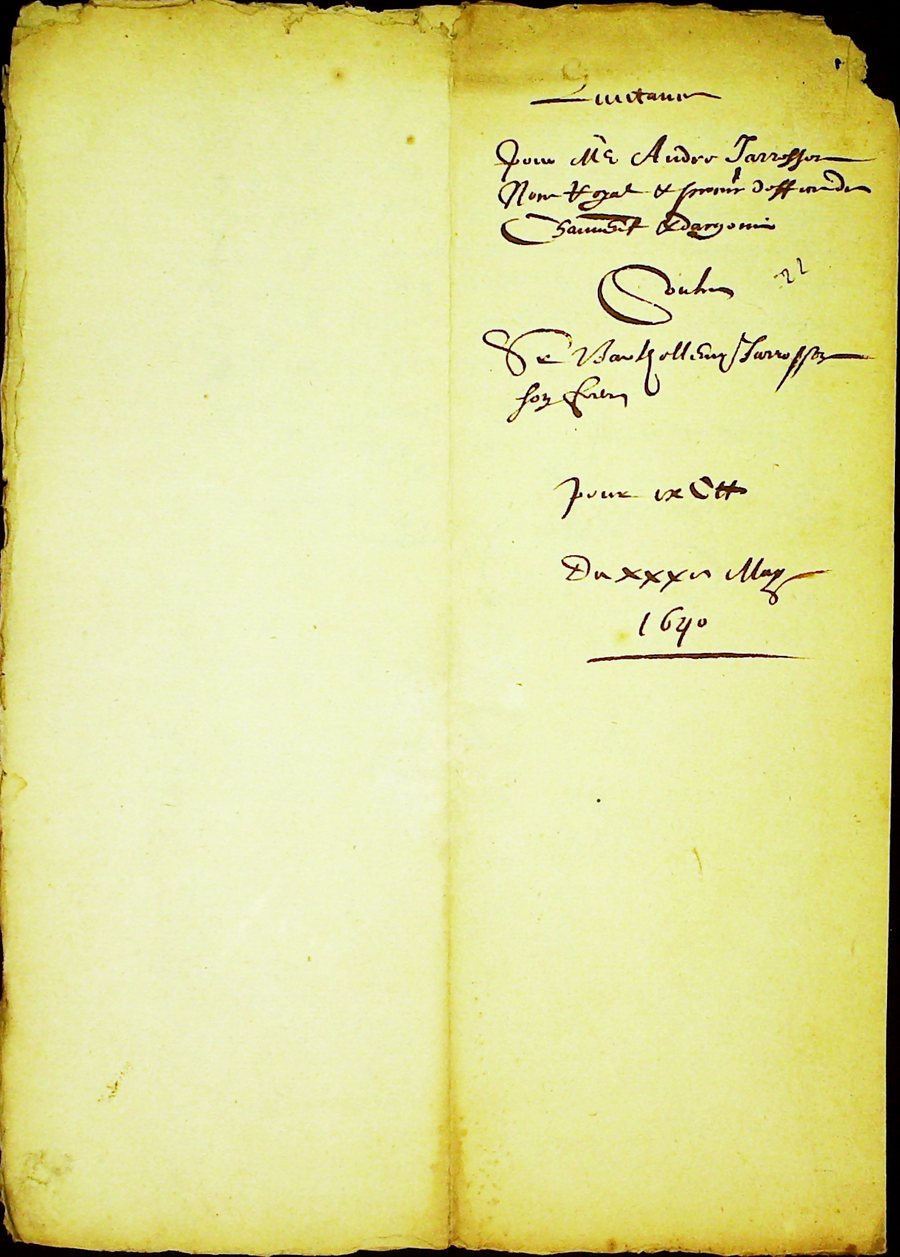 Quittance
Pour Me Andre Jarrosson
Nore Royal & procur doffice de
Chaumont & dargoire
Contre
22
Se Barthellemy Jarrosson
son frere
pour ix C tt
Du xxxe May
1640